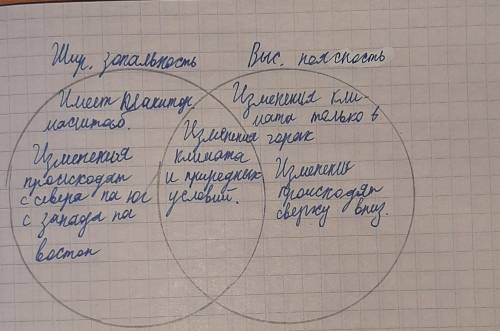 Шир. зональность
Выс. поясность
Имеет
масштаб.
Изменения
происходят
с севера на юг
с запада на
восток
Изменения
климата
и природных
условий.
Изменения кли-
мата только в
горах
Изменения
происходят
сверху вниз.